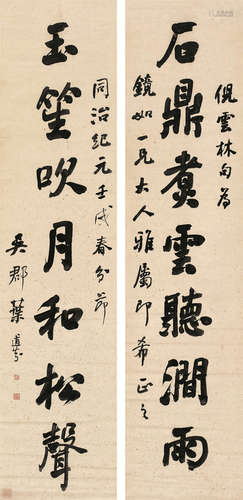 倪雲林句為
石鼎煮雲聽澗雨
鏡如一兄大人雅屬即希正之
玉笙吹月和松聲
同治紀元壬戌春分節
吳郡葉道芬